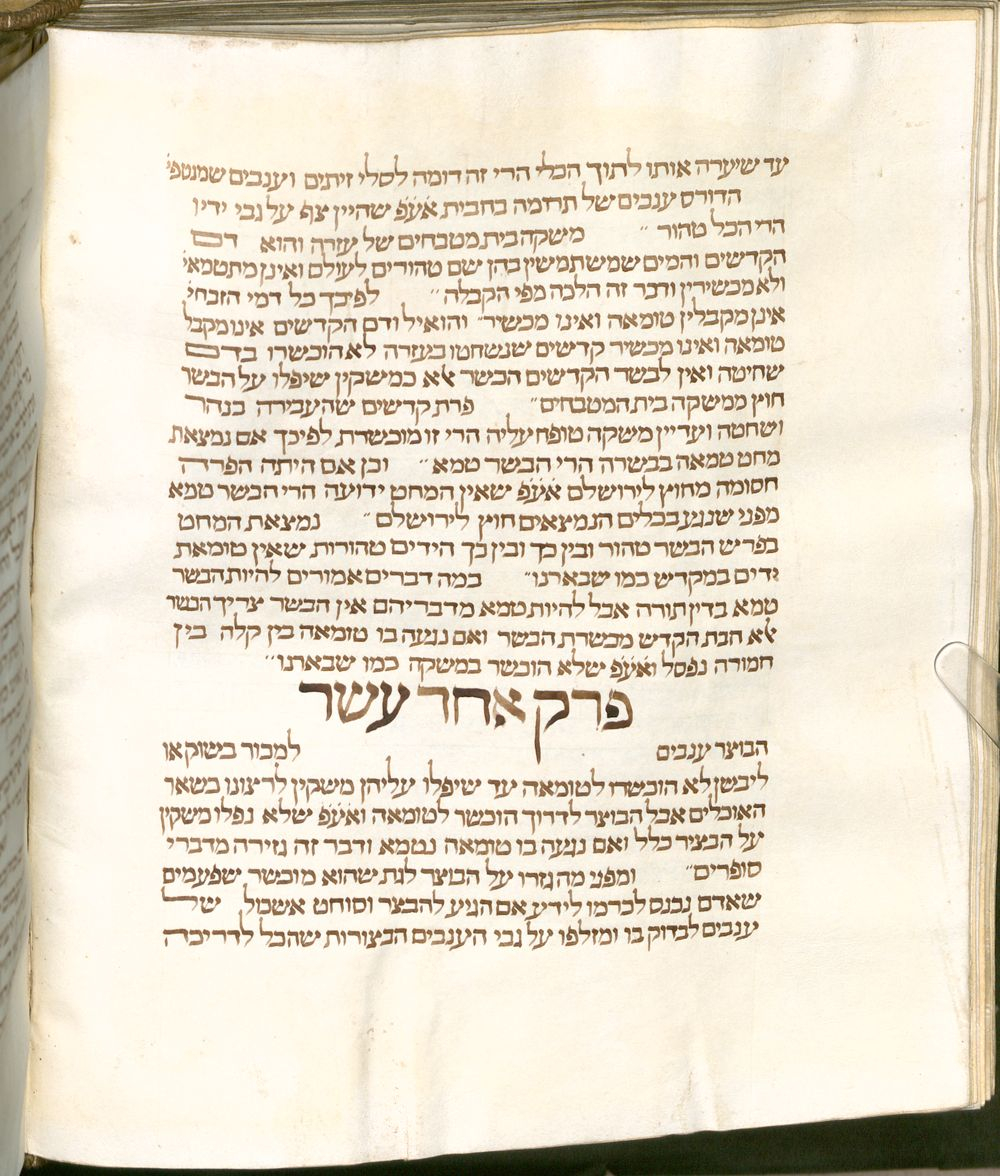 עד שיערה אותו לתוך הכלי הרי זה דומה לסלי זיתים וענבים שמנטפי׳
הדורס ענבים של תרומה בחבית אע׳פ שהיין צף על גבי ידיו
הרי הכל טהור ״ משקה בית מטבחים של עזרה והוא דם
הקדשים והמים שמשתמשין בהן שם טהורים לעולם ואינן מתטמאי׳
ולא מכשירין ודבר זה הלכה מפי הקבלה ״ לפיכך כל דמי הזבחי׳
אינן מקבלין טומאה ואינו מכשיר״ והואיל ודם הקדשים אינו מקבל
טומאה ואינו מכשיר קדשים שנשחטו בעזרה לא הוכשרו בדם
שחיטה ואין לבשר הקדשים הכשר אלא במשקין שיפלו על הבשר
חוץ ממשקה בית המטבחים״ פרת קדשים שהעבירה בנהר
ושחטה ועדיין משקה טופח עליה הרי זו מוכשרת לפיכך אם נמצאת
מחט טמאה בבשרה הרי הבשר טמא ״ וכן אם היתה הפרה
חסומה מחוץ לירושלם אע׳פ שאין המחט ידועה הרי הבשר טמא
מפני שנגע בכלים הנמצאים חוץ לירושלם ״ נמצאת המחט
בפרש הבשר טהור ובין כך ובין כך הידים טהורות שאין טומאת
ידים במקדש כמו שבארנו״ במה דברים אמורים להיות הבשר
טמא בדין תורה אבל להיות טמא מדבריהם אין הבשר צריך הכשר
אלא חבת הקדש מכשרת הבשר ואם נגעה בו טומאה בין קלה בין
חמורה נפסל ואע׳פ שלא הוכשר במשקה כמו שבארנו״
פרק אחד עשר
הבוצר ענבים למכור בשוק או
ליבשן לא הוכשרו לטומאה עד שיפלו עליהן משקין לרצונו כשאר
האוכלים אבל הבוצר לדרוך הוכשר לטומאה ואע׳פ שלא נפלו משקין
על הבציר כלל ואם נגעה בו טומאה נטמא ודבר זה גזירה מדברי
סופרים״ ומפני מה גזרו על הבוצר לגת שהוא מוכשר שפעמים
שאדם נכנס לכרמו לידע אם הגיע להבצר וסוחט אשכול של
ענבים לבדוק בו ומזלפו על גבי הענבים הבצורות שהכל לדריכה